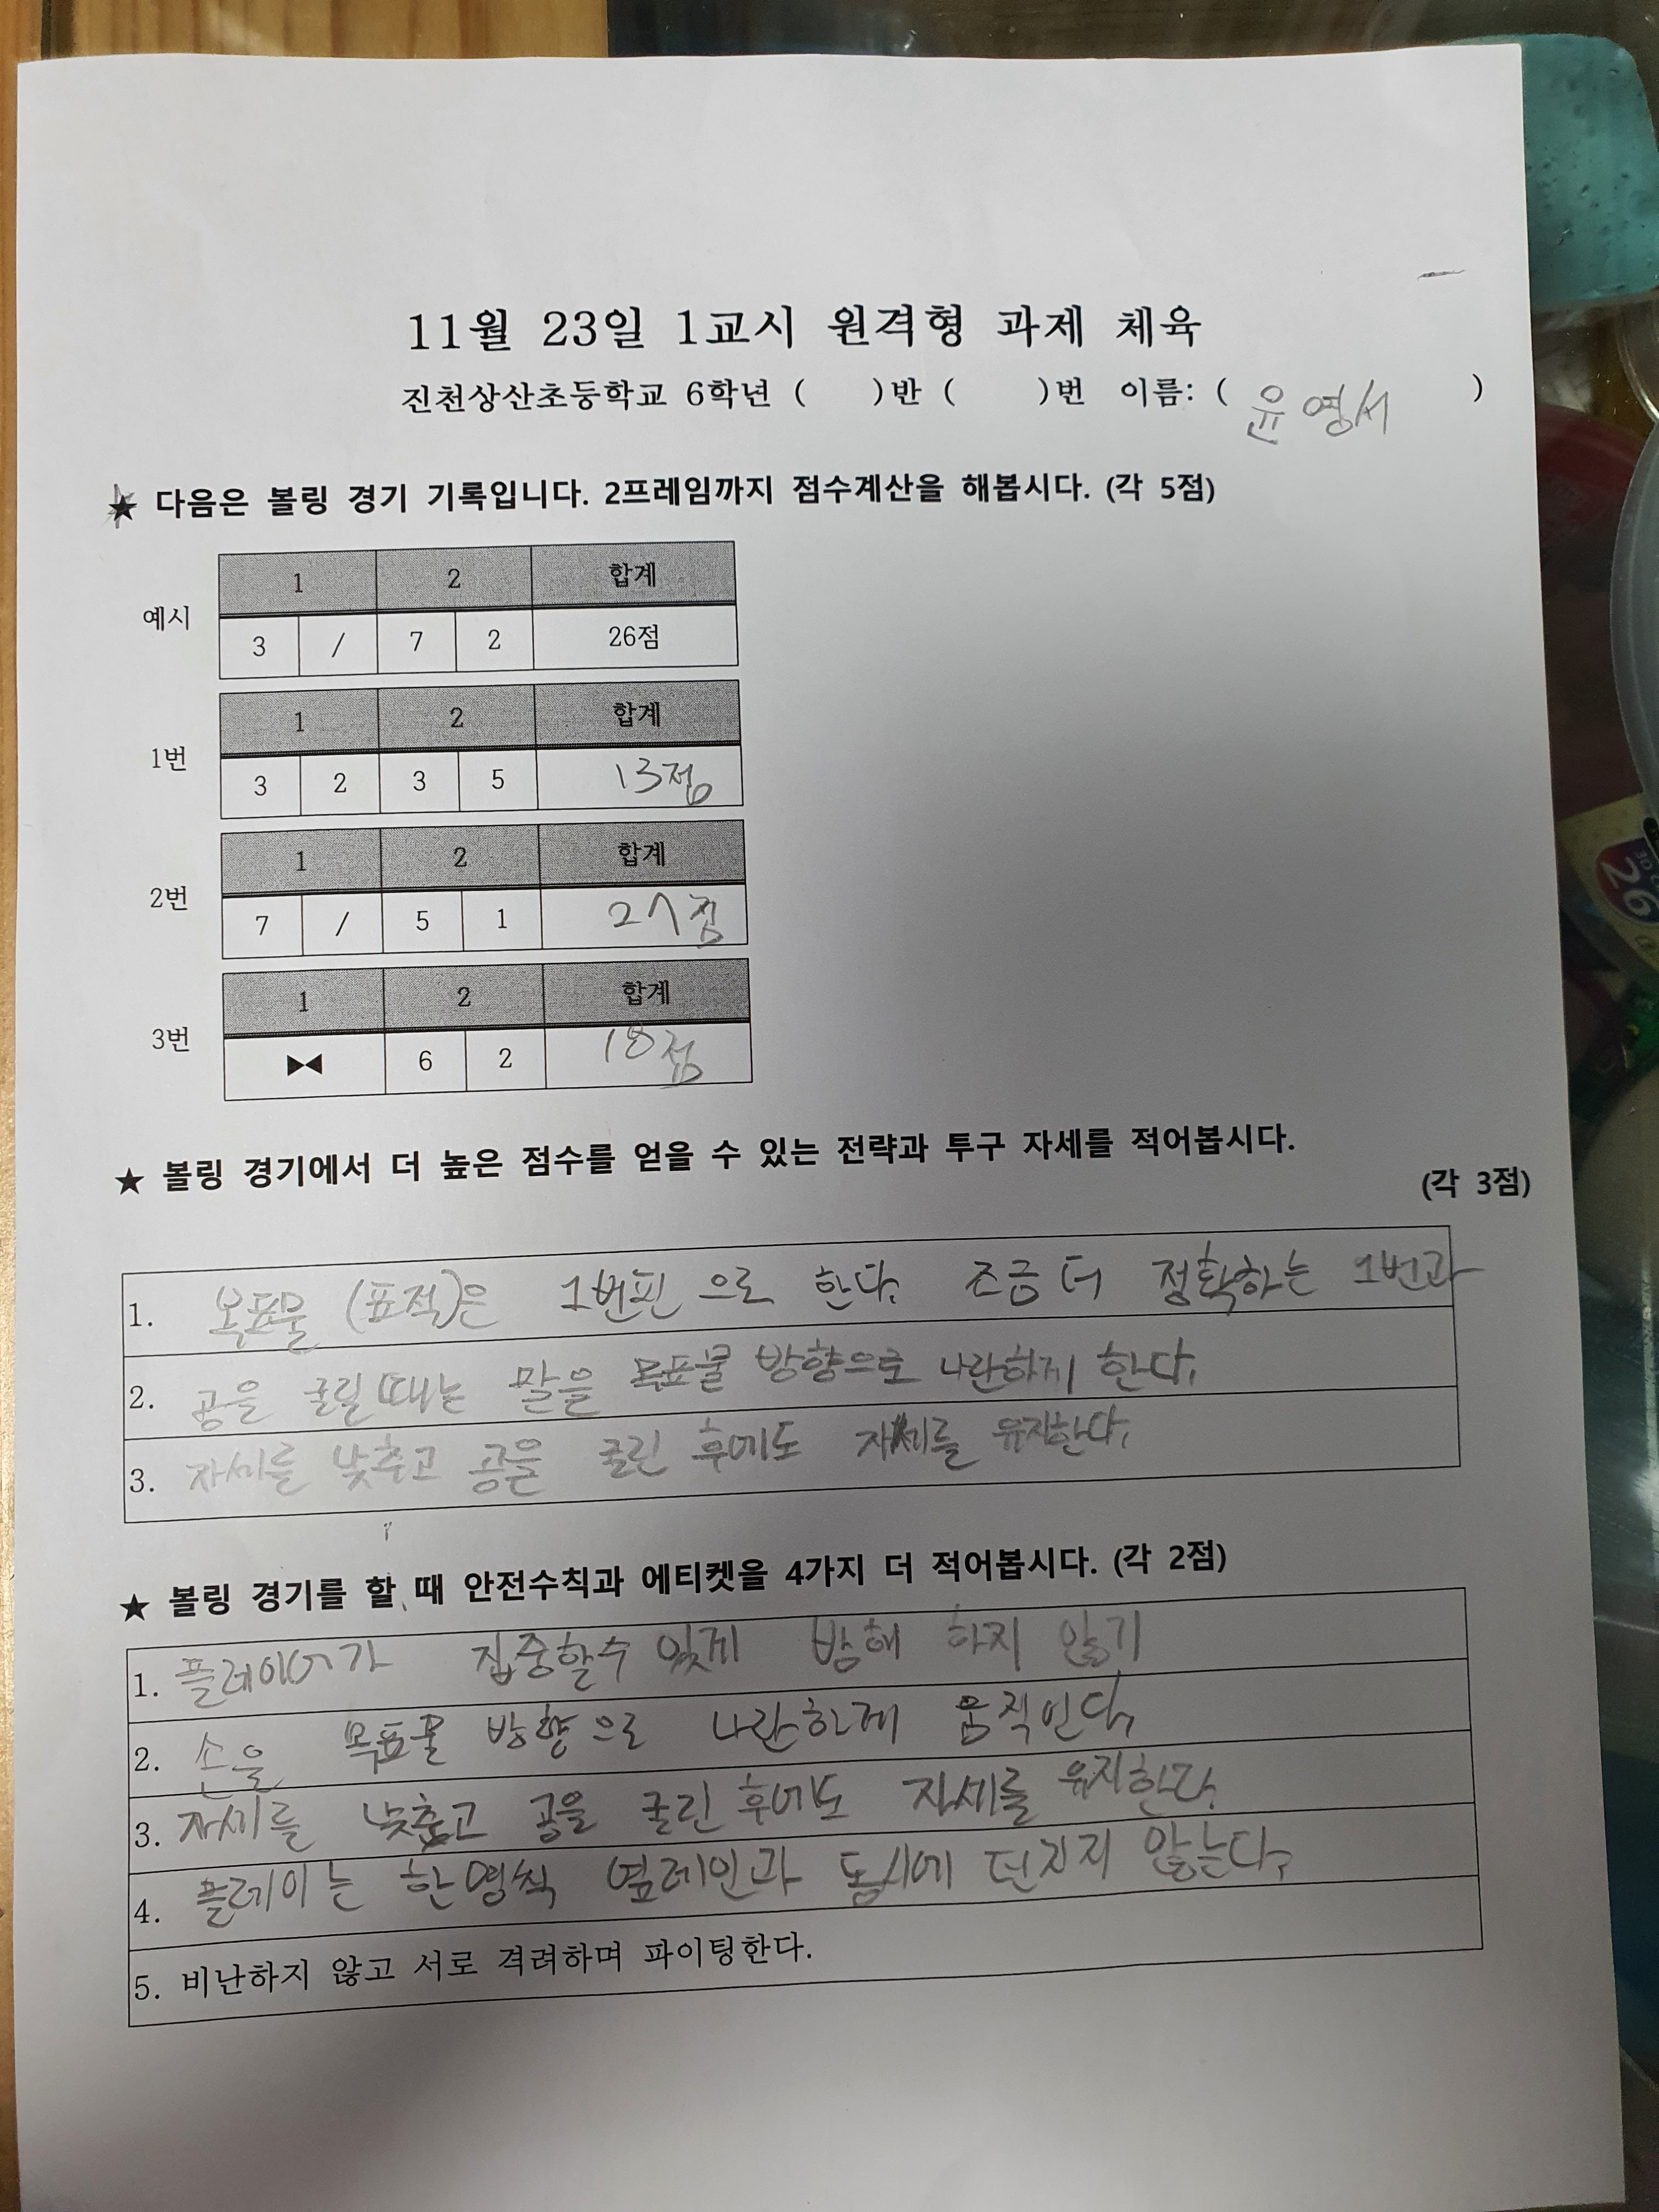 11월 23일 1교시 원격형 과제 체육
진천상산초등학교 6학년 ( )반 ( )번 이름: ( 윤영서 )
★ 다음은 볼링 경기 기록입니다. 2프레임까지 점수계산을 해봅시다. (각 5점)
예시
1 2 합계
3 / 7 2 26점
1번
1 2 합계
3 2 3 5 13점
2번
1 2 합계
7 / 5 1 27점
3번
1 2 합계
▶◀ 6 2 18점
★ 볼링 경기에서 더 높은 점수를 얻을 수 있는 전략과 투구 자세를 적어봅시다.
(각 3점)
1. 목표물 (표적)은 1번핀으로 한다. 조금 더 정확하는 1번과
2. 공을 굴릴때는 말을 목표물 방향으로 나란하게 한다.
3. 자세를 낮추고 공을 굴린 후에도 자세를 유지한다.
★ 볼링 경기를 할 때 안전수칙과 에티켓을 4가지 더 적어봅시다. (각 2점)
1. 플레이어가 집중할수 있게 방해 하지 않기
2. 손을 목표물 방향으로 나란하게 움직인다.
3. 자세를 낮추고 공을 굴린 후에도 자세를 유지한다.
4. 플레이는 한명씩 옆레인과 동시에 던지지 않는다.
5. 비난하지 않고 서로 격려하며 파이팅한다.
26